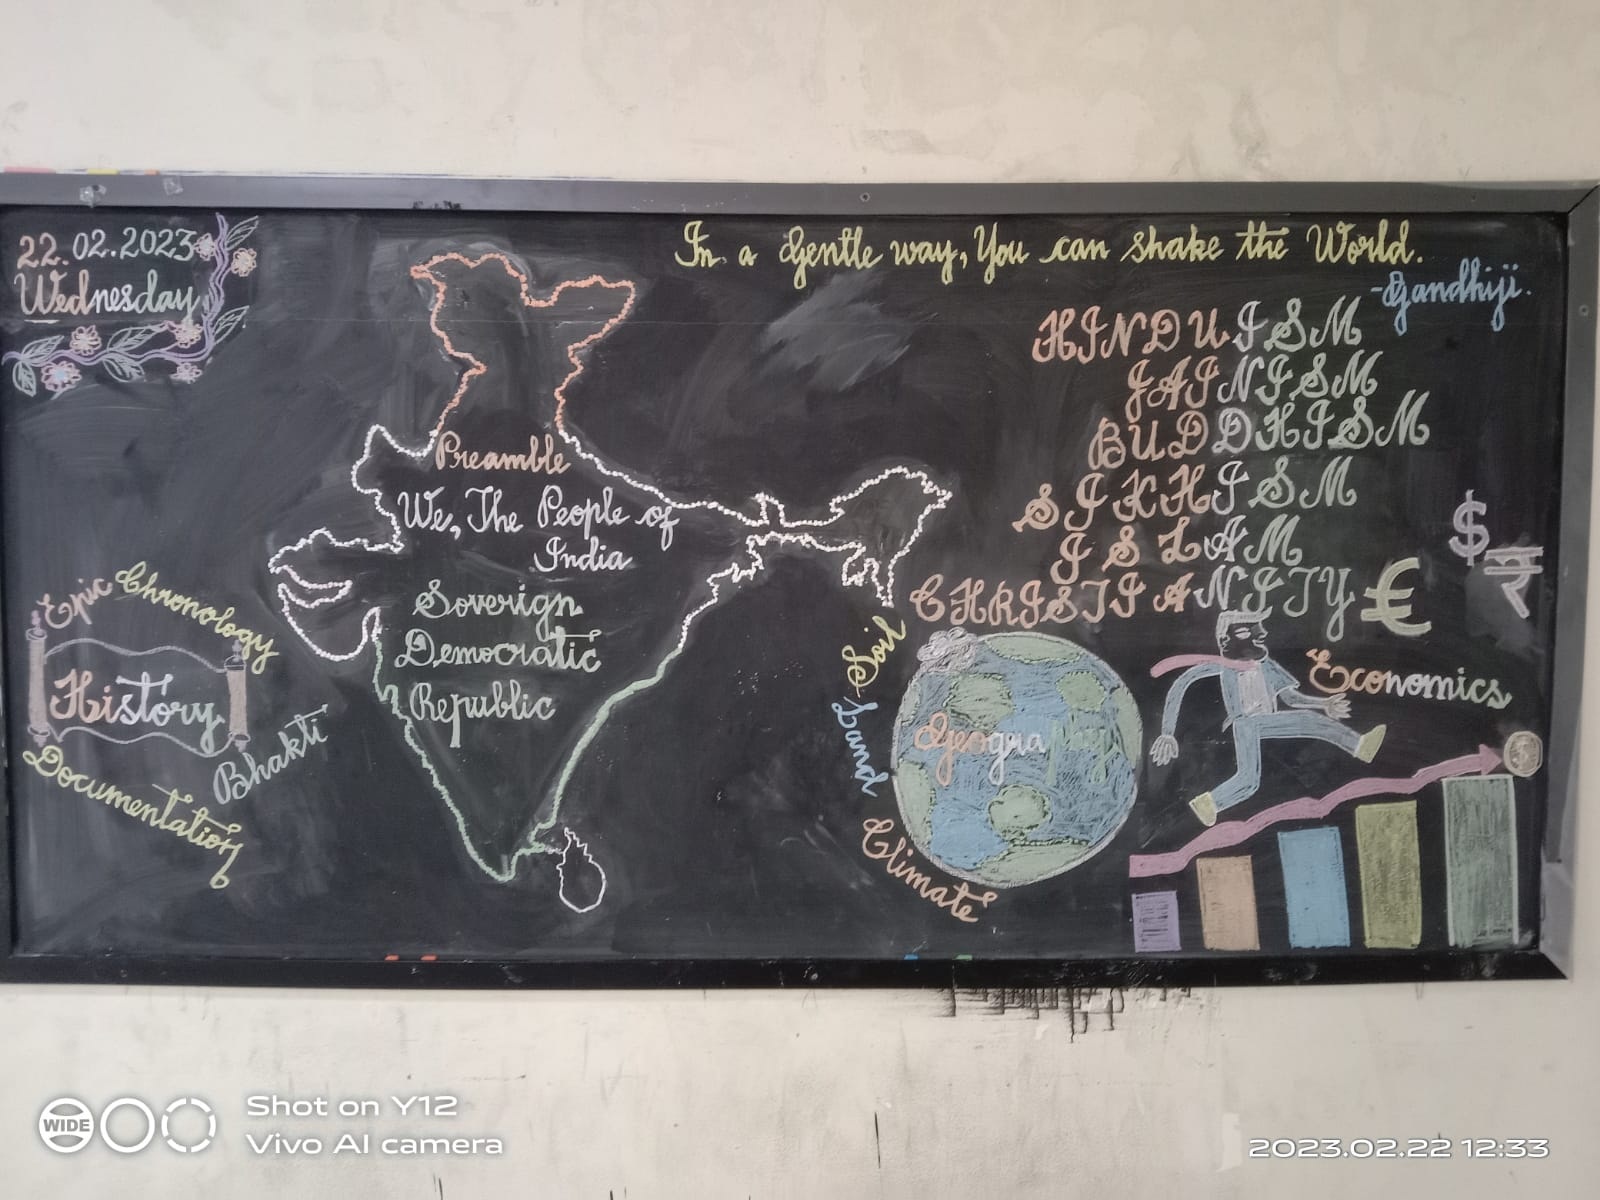 22.02.2023
Wednesday
In a Gentle way, You can shake the World.
-Gandhiji.
HINDUISM
JAINISM
BUDDHISM
SIKHISM
ISLAM
CHRISTIANITY
Preamble
We, The People of
India
Soverign
Democratic
Republic
Epic
Chronology
History
Bhakti
Documentation
Soil
Land
Climate
Geography
$
₹
€
Economics
WIDE
Shot on Y12
Vivo AI camera
2023.02.22 12:33